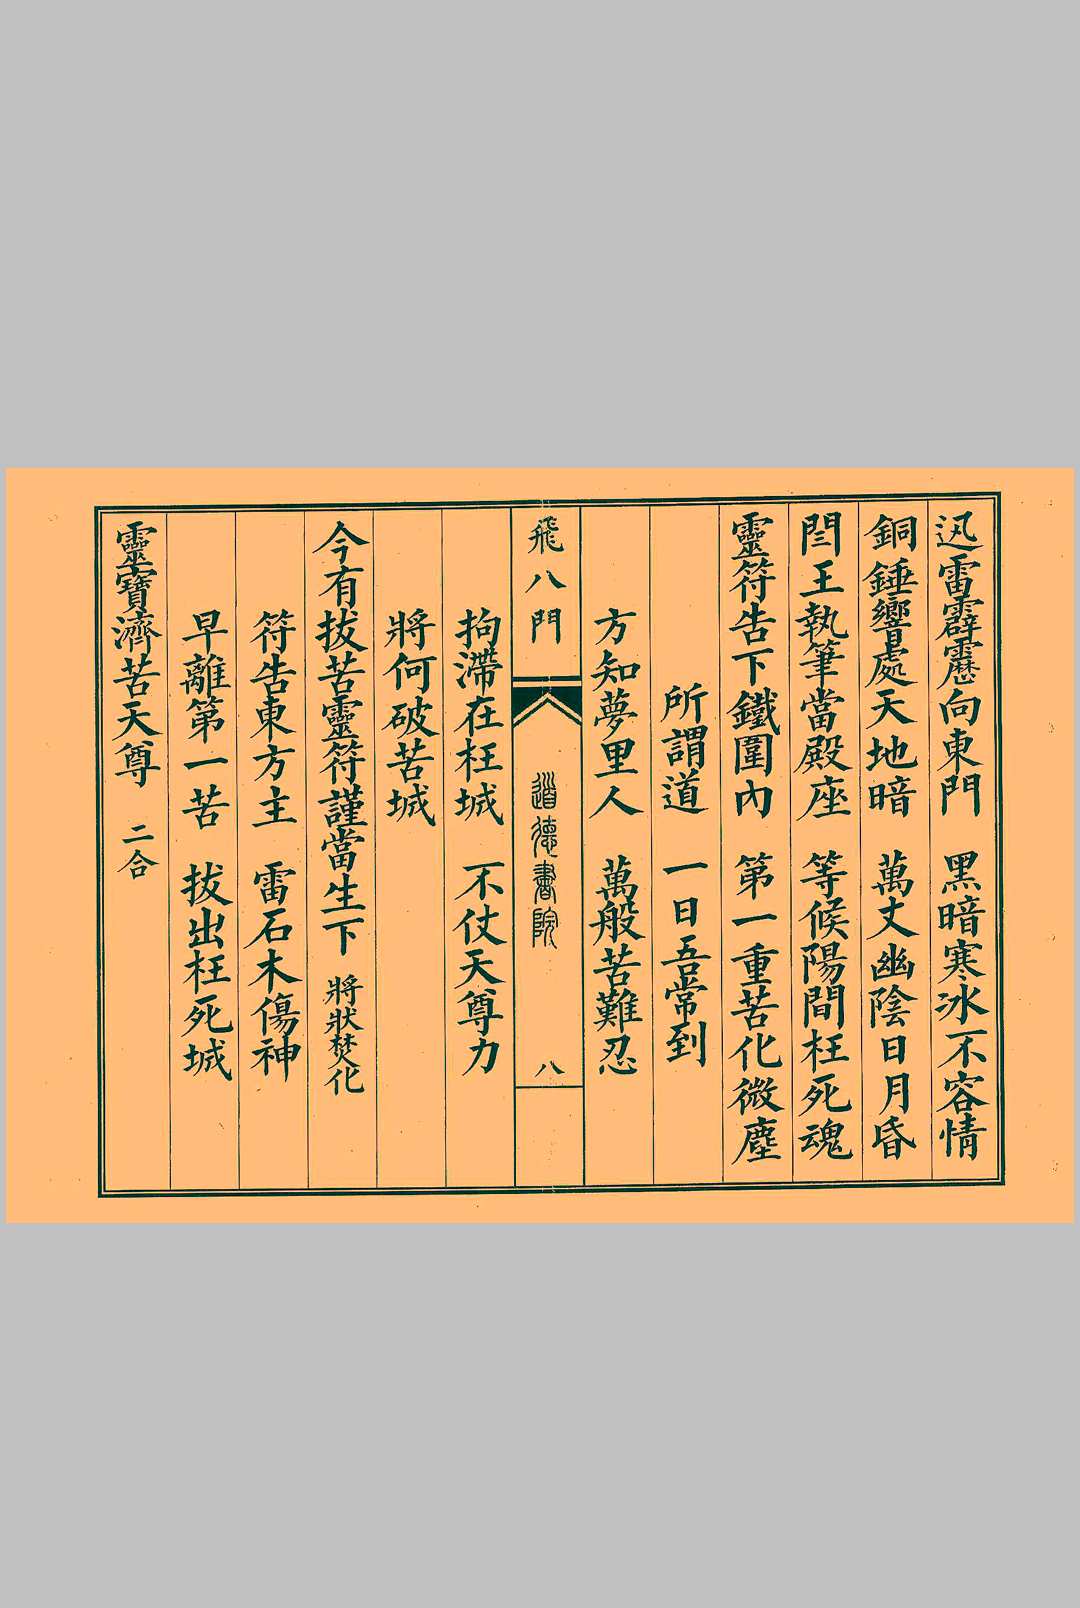 迅雷霹靂向東門　黑暗寒冰不容情
銅錘響處天地暗　萬丈幽陰日月昏
閆王執筆當殿座　等候陽間枉死魂
靈符告下鐵圍內　第一重苦化微塵
所謂道　一日吾常到
方知夢里人　萬般苦難忍
飛八門　道德書院　八
拘滯在枉城　不仗天尊力
將何破苦城
今有拔苦靈符謹當生下　將狀焚化
符告東方主　雷石木傷神
早離第一苦　拔出枉死城
靈寶濟苦天尊　二合